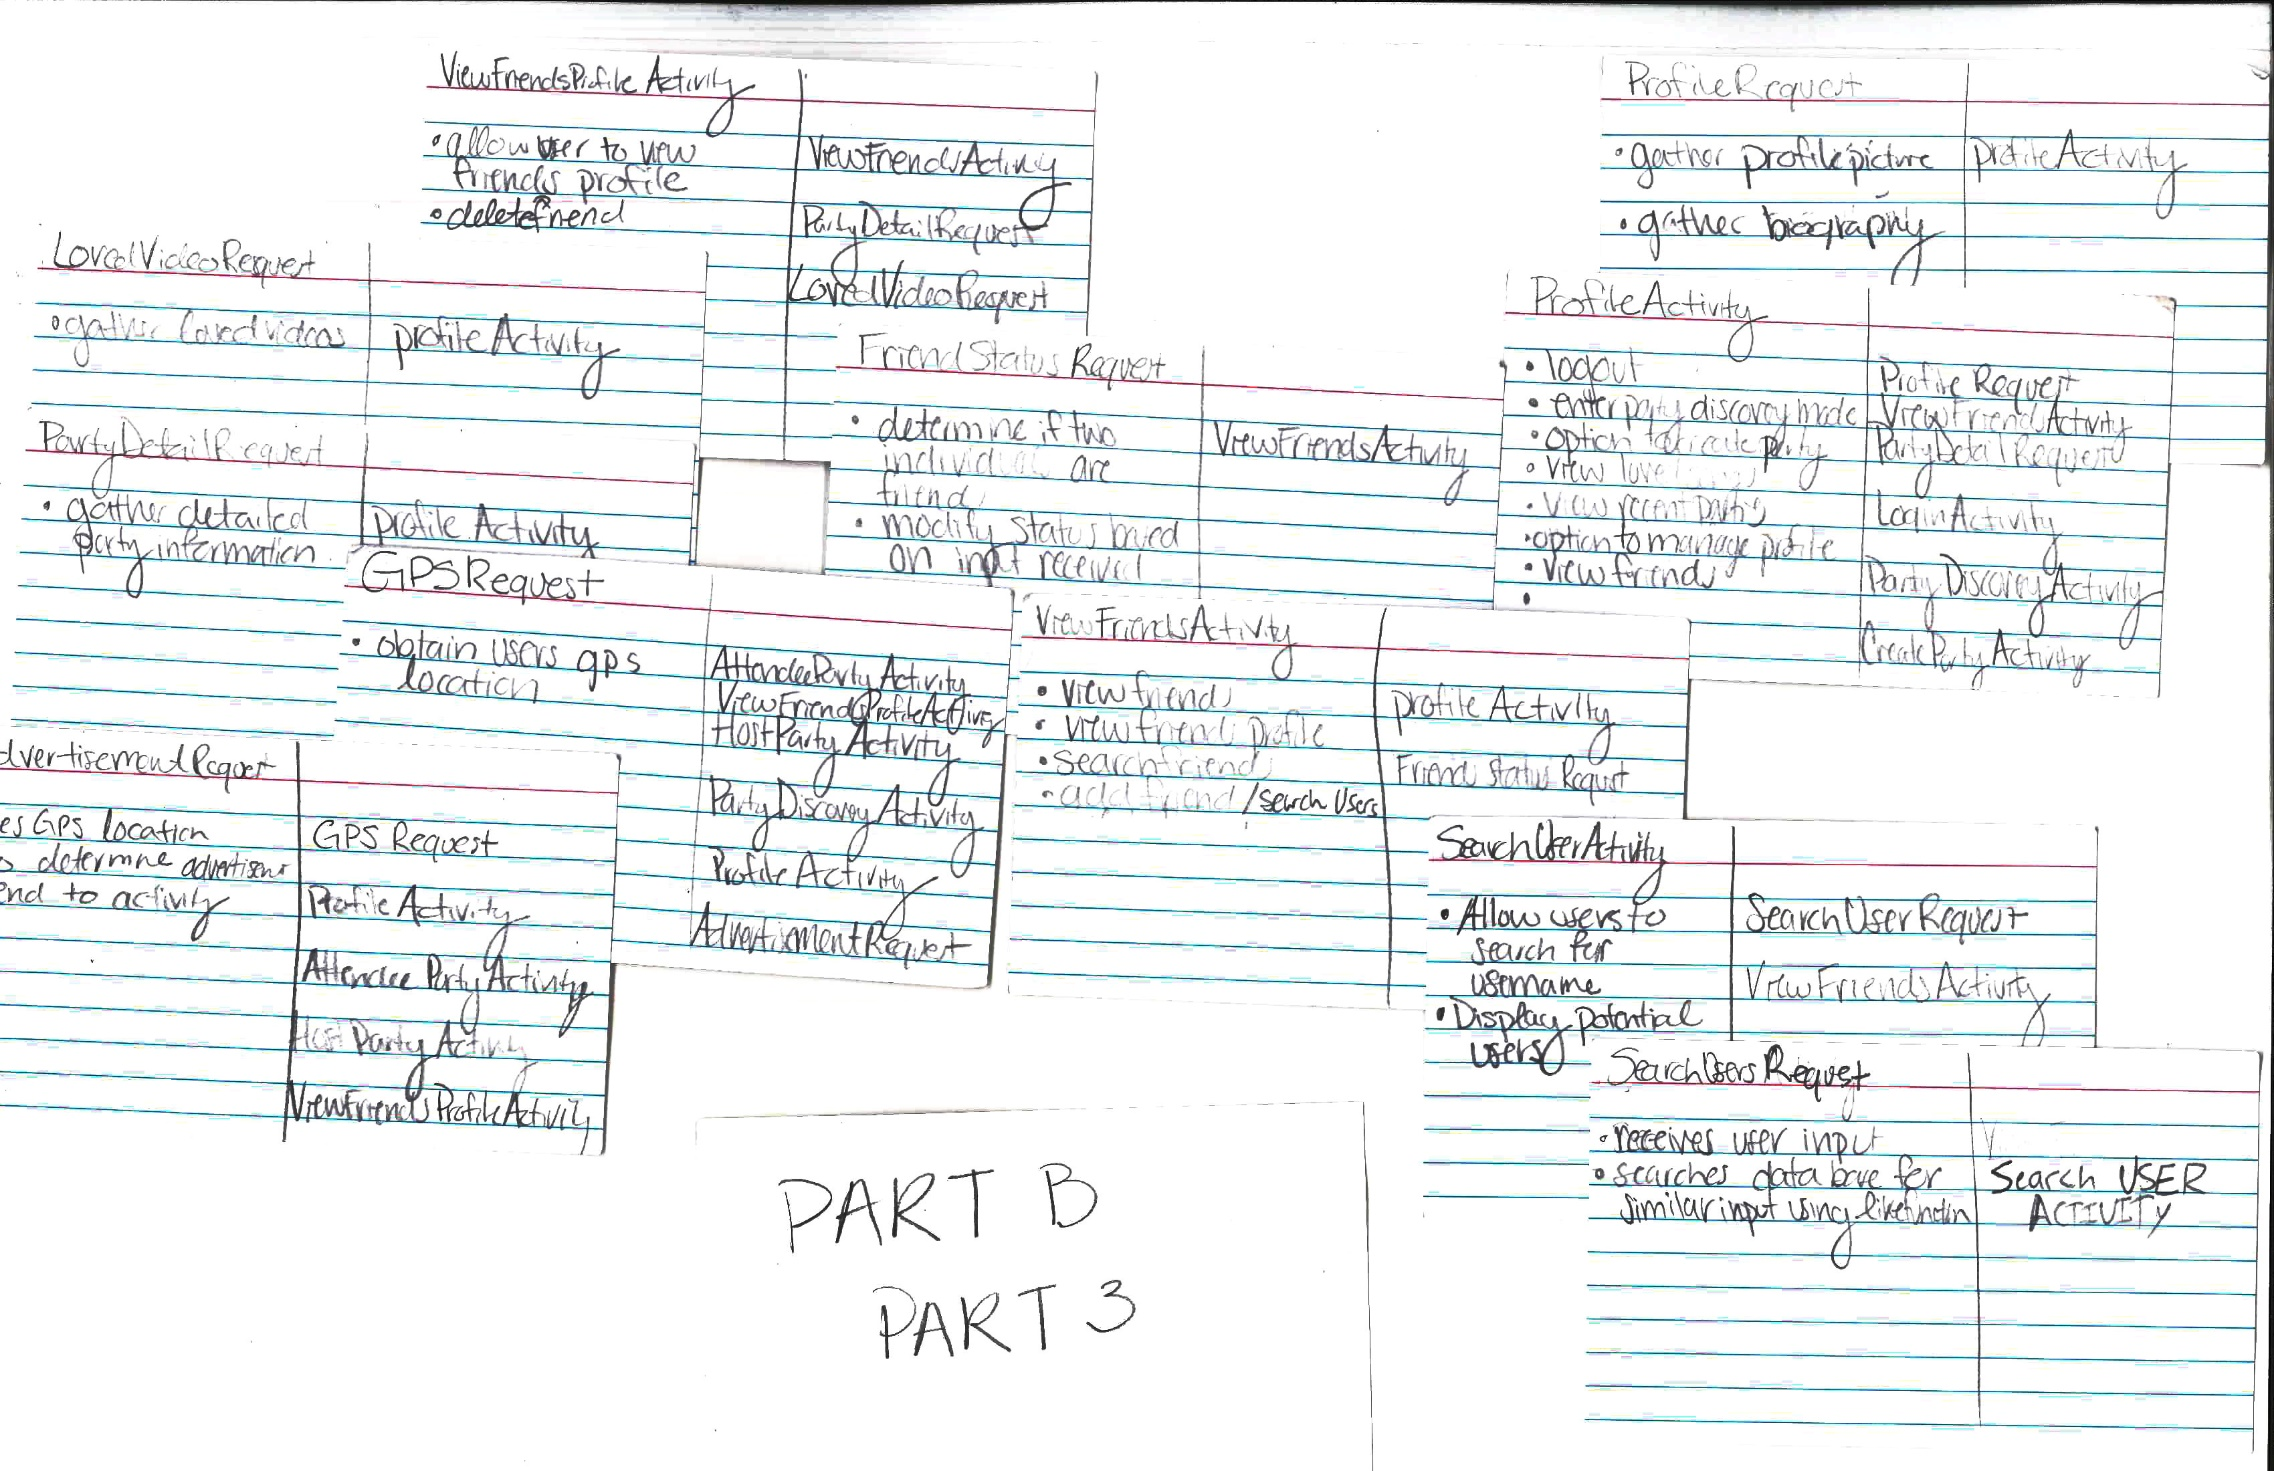 ViewFriendsProfile Activity
• allow user to view
friends profile
• delete friend
ViewFriendsActivity
PartyDetailRequest
LovedVideoRequest
ProfileRequest
• gather profile picture
• gather biography
profileActivity
LovedVideoRequest
• gather loved videos
profileActivity
FriendStatus Request
• determine if two
individual are
friends
• modify status based
on input received
ViewFriendsActivity
ProfileActivity
• logout
• enter party discovery mode
• option to create party
• view love
• view recent party
• option to manage profile
• view friends
•
Profile Request
ViewFriendActivity
PartyDetailRequest
LoginActivity
Party Discovery Activity
CreateParty Activity
PartyDetailRequest
• gather detailed
party information
profile Activity
GPSRequest
• obtain users gps
location
AttendeeParty Activity
ViewFriendsProfileActivity
HostParty Activity
PartyDiscovery Activity
Profile Activity
AdvertisementRequest
ViewFriendsActivity
• view friends
• view friends profile
• search friends
• add friend / search users
profile Activity
Friend Status Request
dvertisementRequest
es GPS location
o determine advertisem
end to activity
GPS Request
Profile Activity
Attendee Party Activity
Host Party Activity
ViewFriendsProfileActivity
SearchUserActivity
• Allow users to
search for
username
• Display potential
users
SearchUserRequest
ViewFriendsActivity
SearchUsersRequest
• receives user input
• searches data base for
similar input using like function
Search USER
ACTIVITY
PART B
PART 3